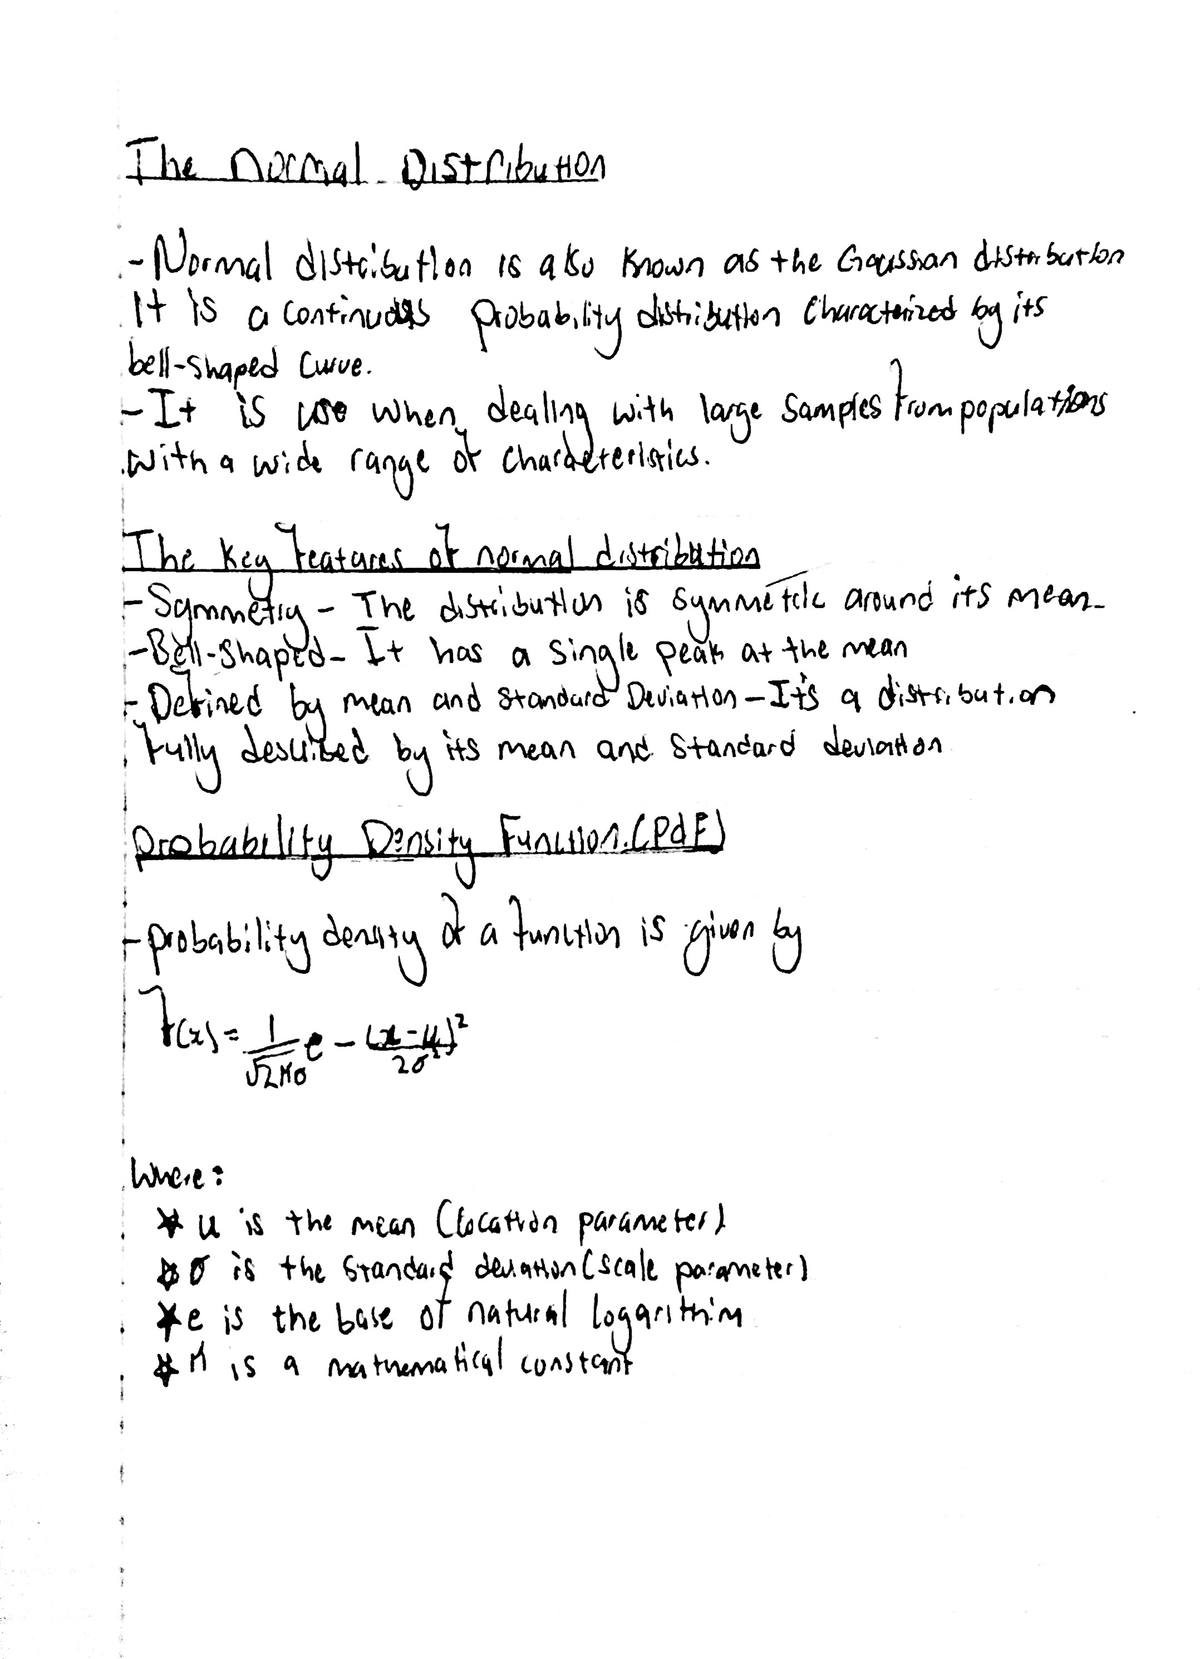 The Normal Distribution
- Normal distribution is also known as the Gaussian distribution
It is a continuous probability distribution characterized by its
bell-shaped curve.
- It is use when dealing with large samples from populations
with a wide range of characteristics.
The key features of normal distribution
- Symmetry - The distribution is symmetric around its mean
- Bell-shaped - It has a single peak at the mean
- Defined by mean and standard Deviation - It's a distribution
fully described by its mean and standard deviation
Probability Density Function (PdF)
- probability density of a function is given by
f(x) = 1/√2πσ e - (x-μ)²/2σ²
Where:
* μ is the mean (location parameter)
* σ is the standard deviation (scale parameter)
* e is the base of natural logarithim
* π is a mathematical constant